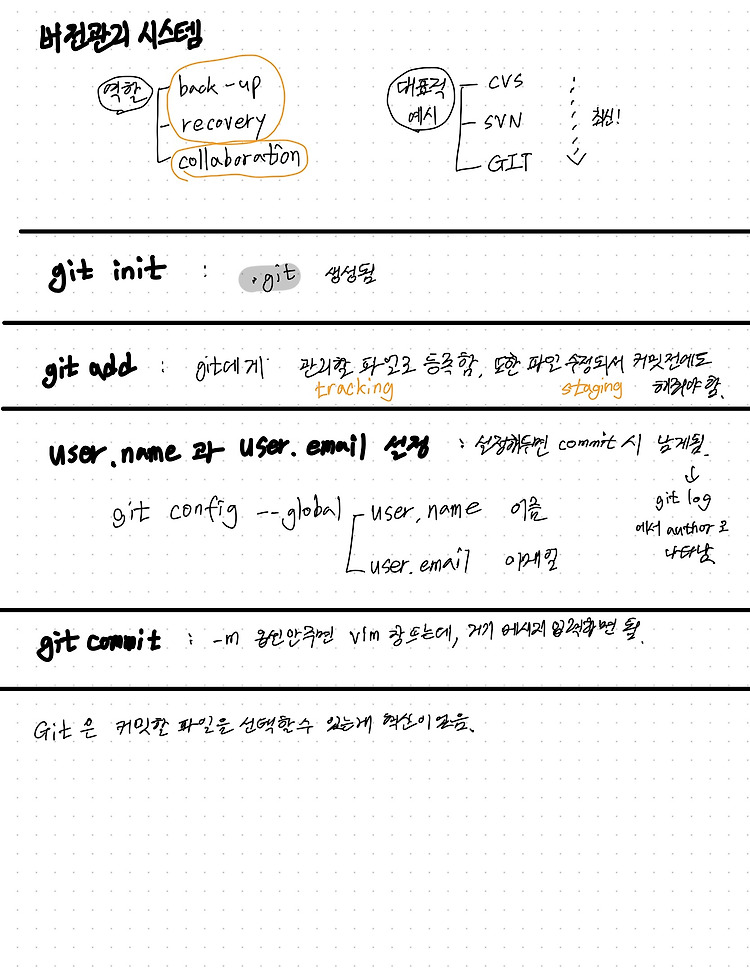 버전관리 시스템
역할
back-up
recovery
collaboration
대표적
예시
CVS
SVN
GIT
최신!
git init : .git 생성됨
git add : git에게 관리할 파일로 등록함, 또한 파일 수정되서 커밋전에도
tracking
staging
해줘야함.
user.name 과 user.email 설정 : 설정해두면 commit 시 남게됨.
git config --global
user.name 이름
user.email 이메일
git log
에서 author로
나타남
git commit : -m 옵션안주면 vim 창뜨는데, 거기 메시지 입력하면 됨.
Git은 커밋할 파일을 선택할수 있는게 혁신이었음.